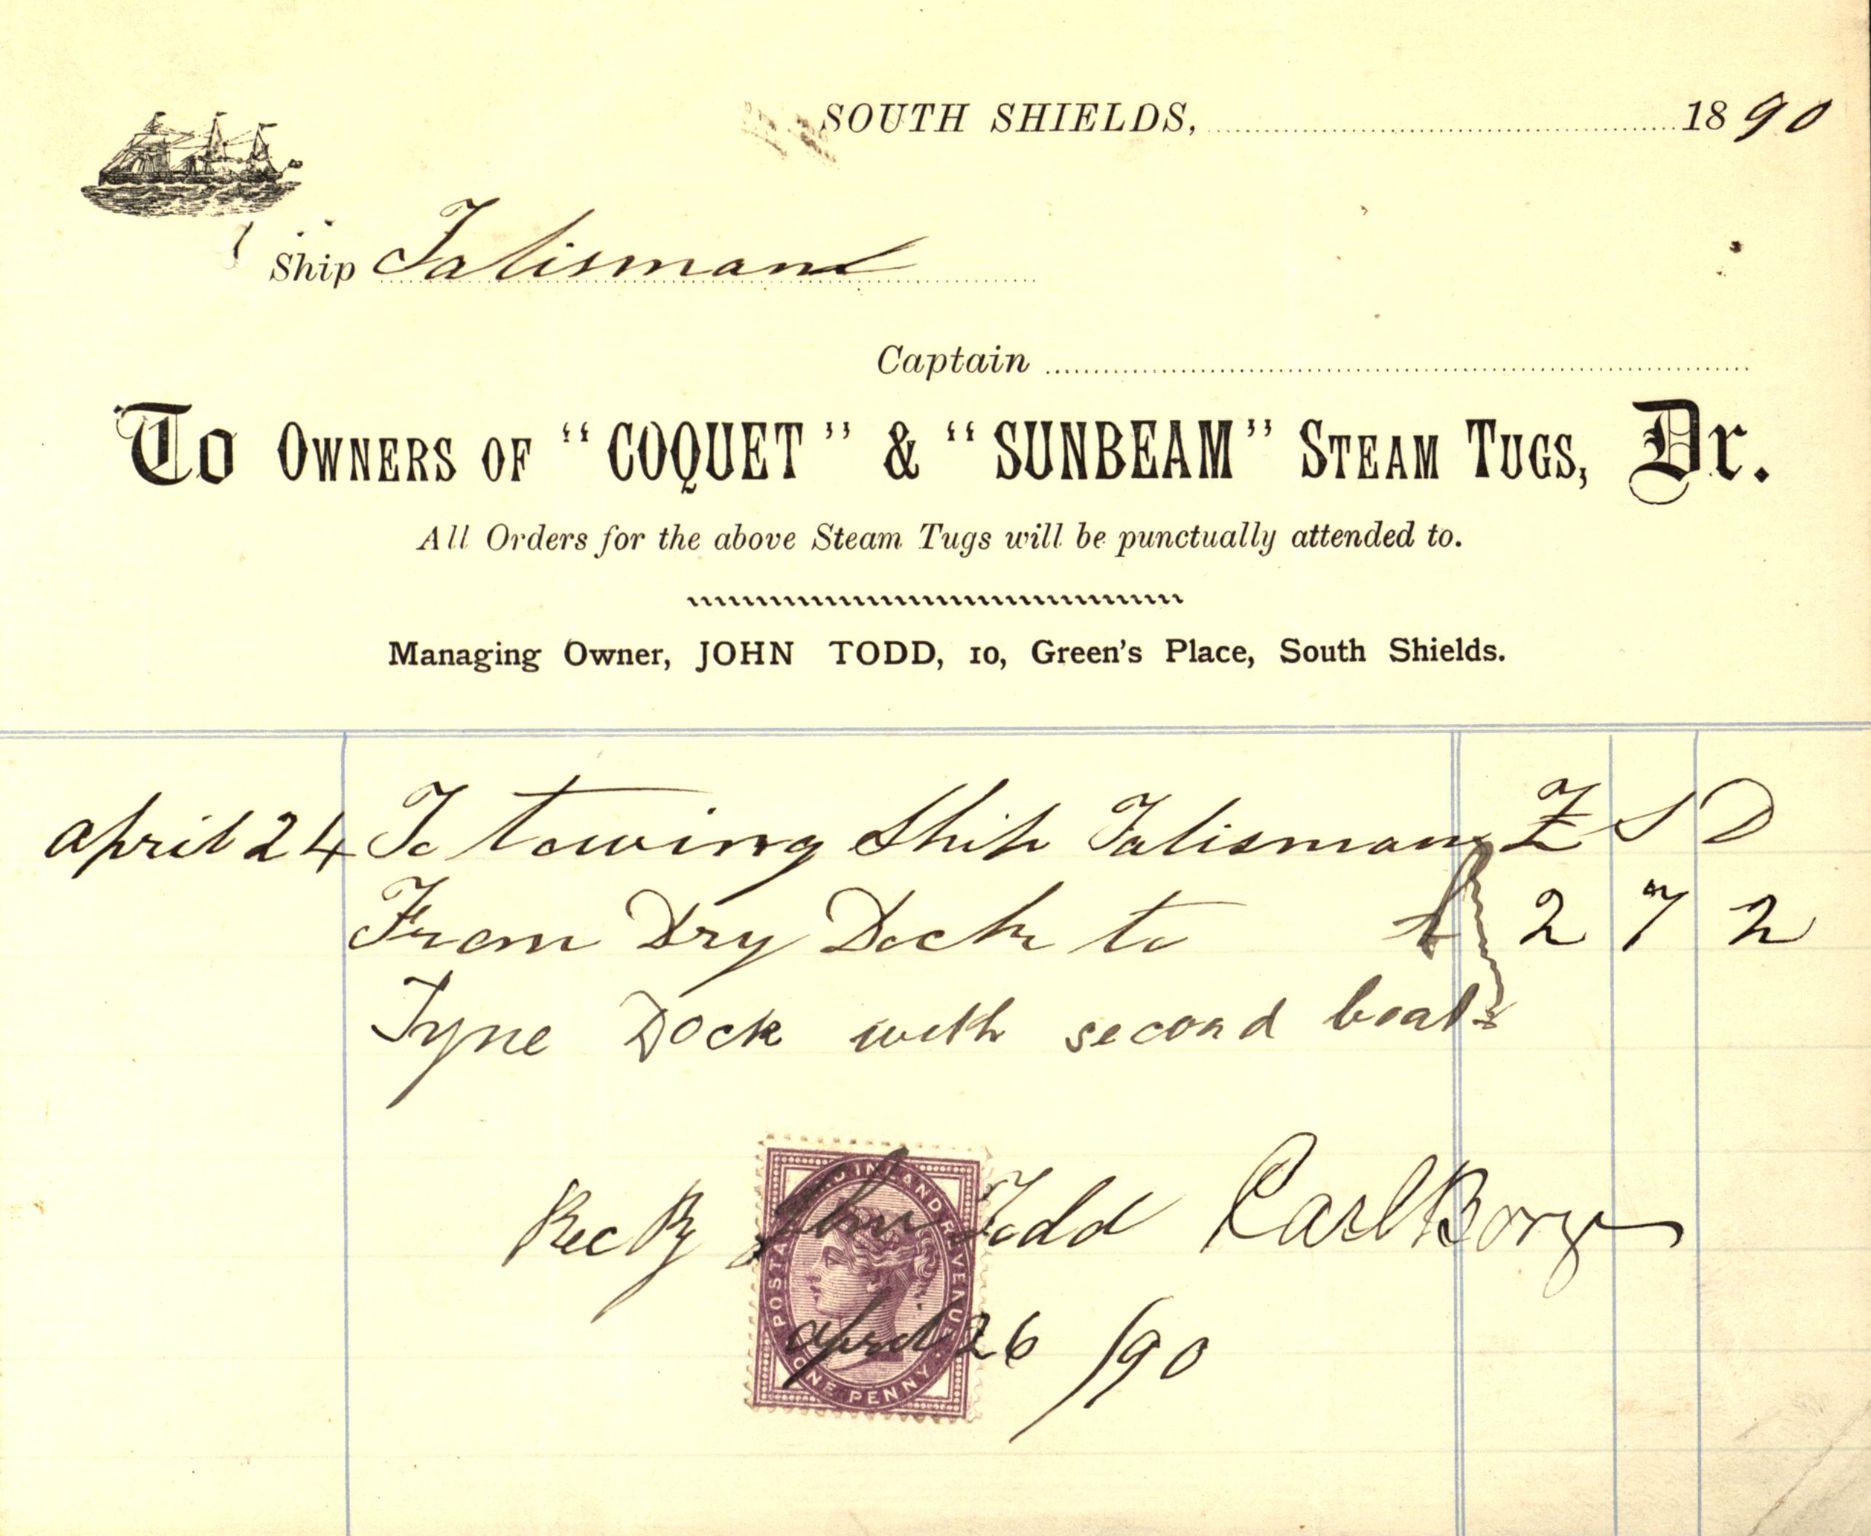 SOUTH SHIELDS, 1890
Ship Talisman
Captain
To OWNERS OF "COQUET" & "SUNBEAM" STEAM TUGS, Dr.
All Orders for the above Steam Tugs will be punctually attended to.
Managing Owner, JOHN TODD, 10, Green's Place, South Shields.
April 24 To towing Ship Talisman £ S D
From Dry Dock to 2 7 2
Tyne Dock with second boat
Rec By John Todd Carl Borg
April 26 /90
POSTAGE AND INLAND REVENUE
ONE PENNY